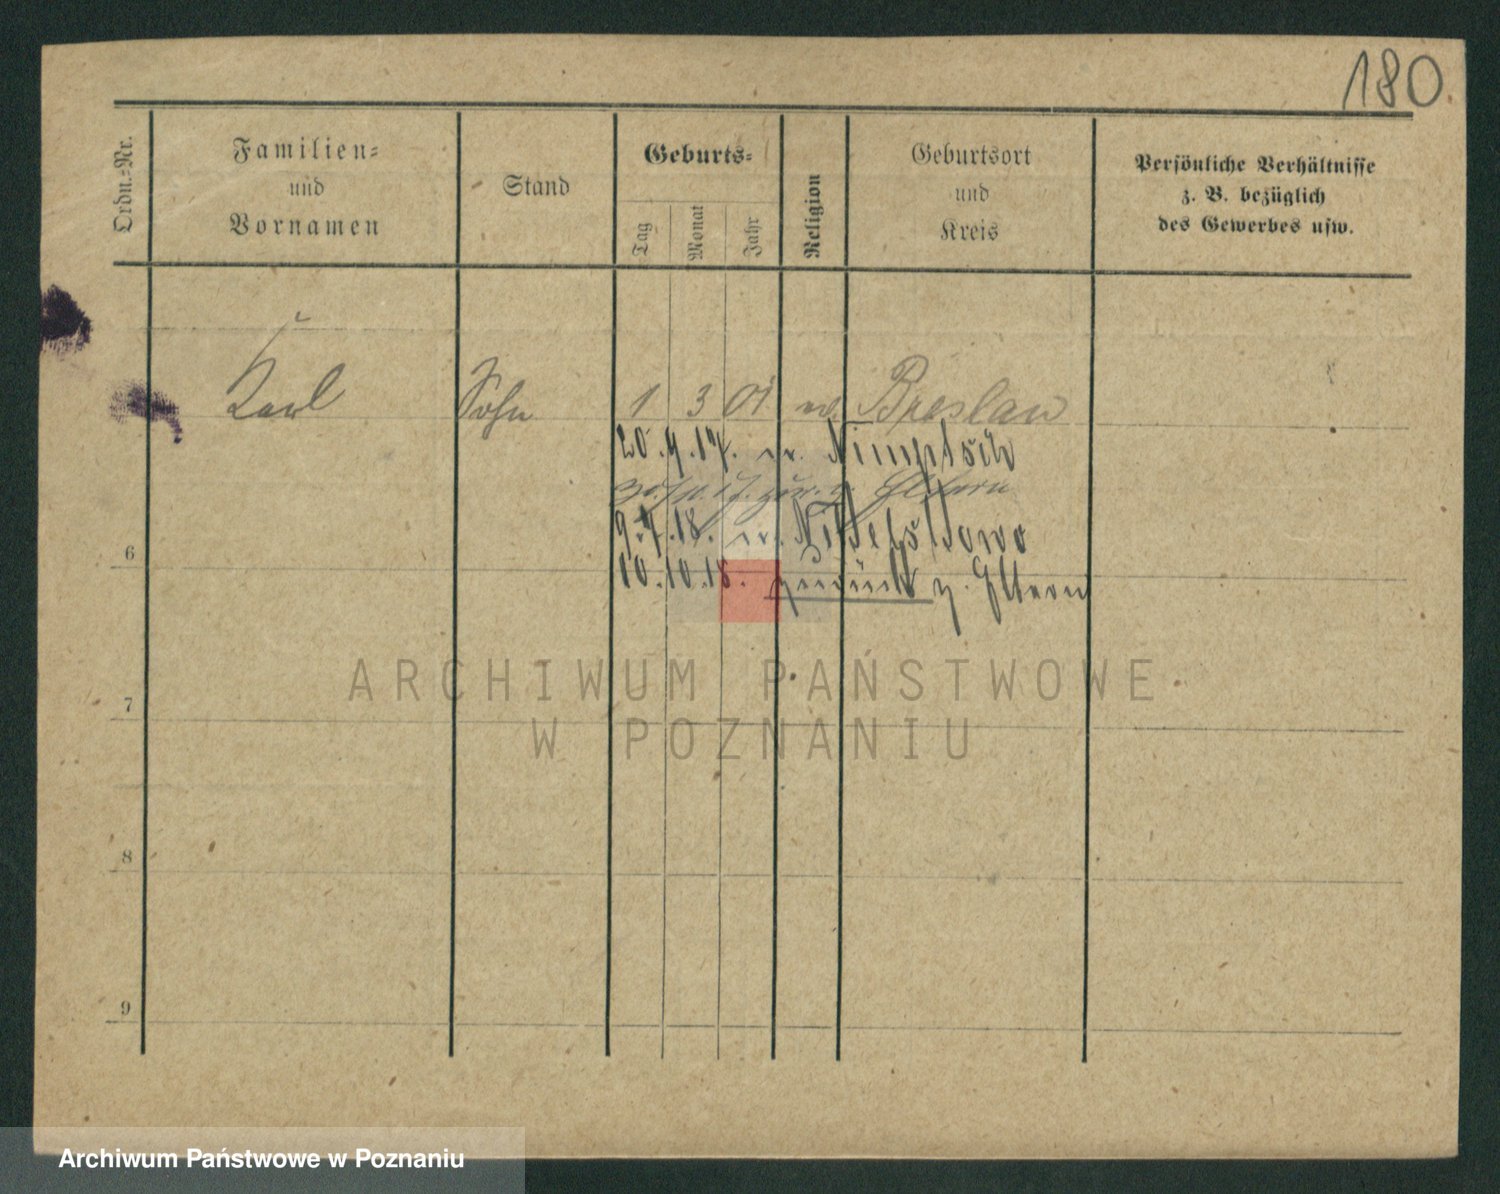 180
Ordn.=Nr.
Familien=
und
Vornamen
Stand
Geburts=
Tag
Monat
Jahr
Religion
Geburtsort
und
Kreis
Persönliche Verhältnisse
z. B. bezüglich
des Gewerbes usw.
Karl Sohn 1 3 01 ev. Breslau
20.9.17. n. Nimptsch
z. Eltern
9.4.18. n.
10.10.18. zurück z. Eltern
6
7
8
9
ARCHIWUM PAŃSTWOWE
W POZNANIU
Archiwum Państwowe w Poznaniu